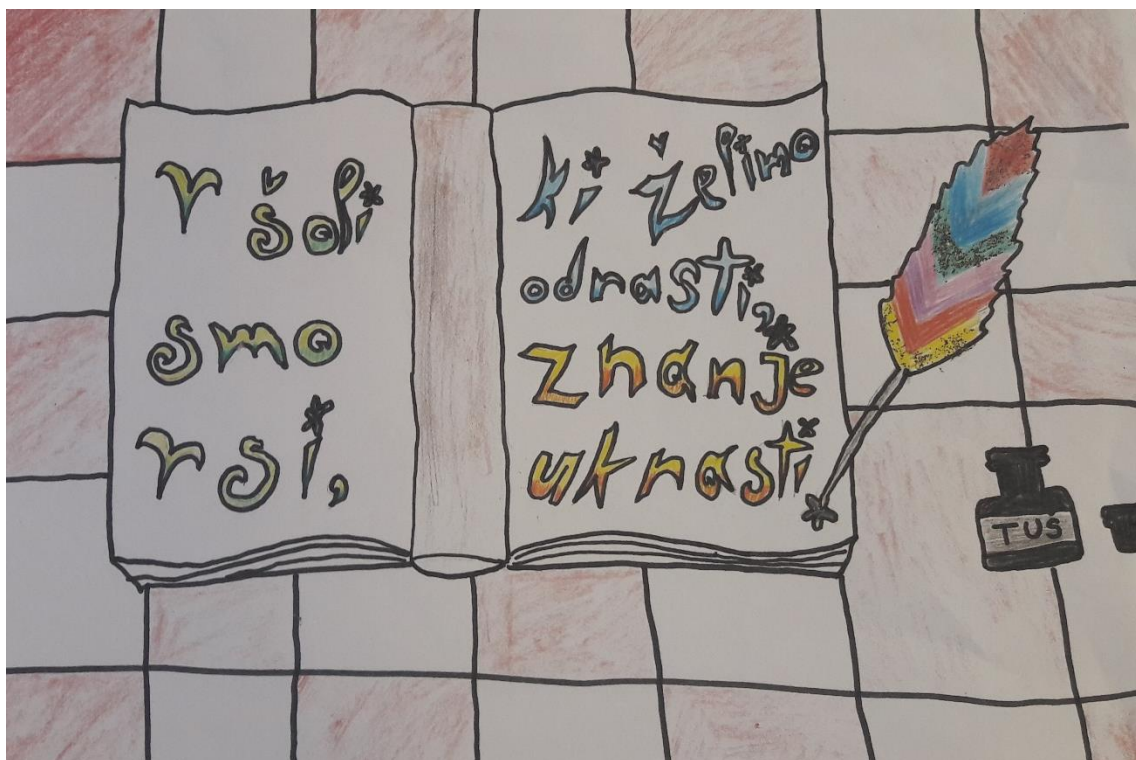 V šoli
smo
vsi,
ki želimo
odrasti,
znanje
ukrasti
TUŠ